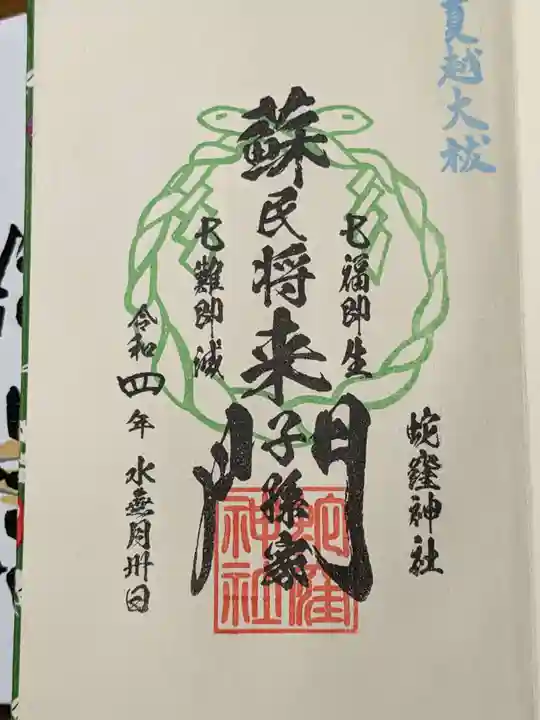 夏越大祓
蛇窪神社
七福即生
蘇民将来子孫家門
七難即滅
令和四年水無月卅日
蛇窪神社